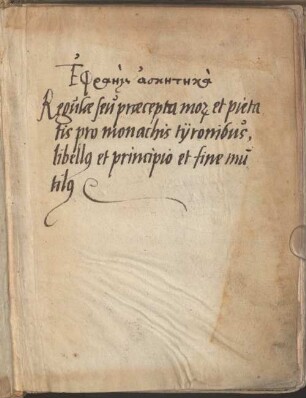 Ἐφραὶμ ἀσκητικὰ
Regulæ seu præcepta moꝝ et pieta
tis pro monachis tÿronibus,
libellꝰ et principio et fine mu
tilꝰ